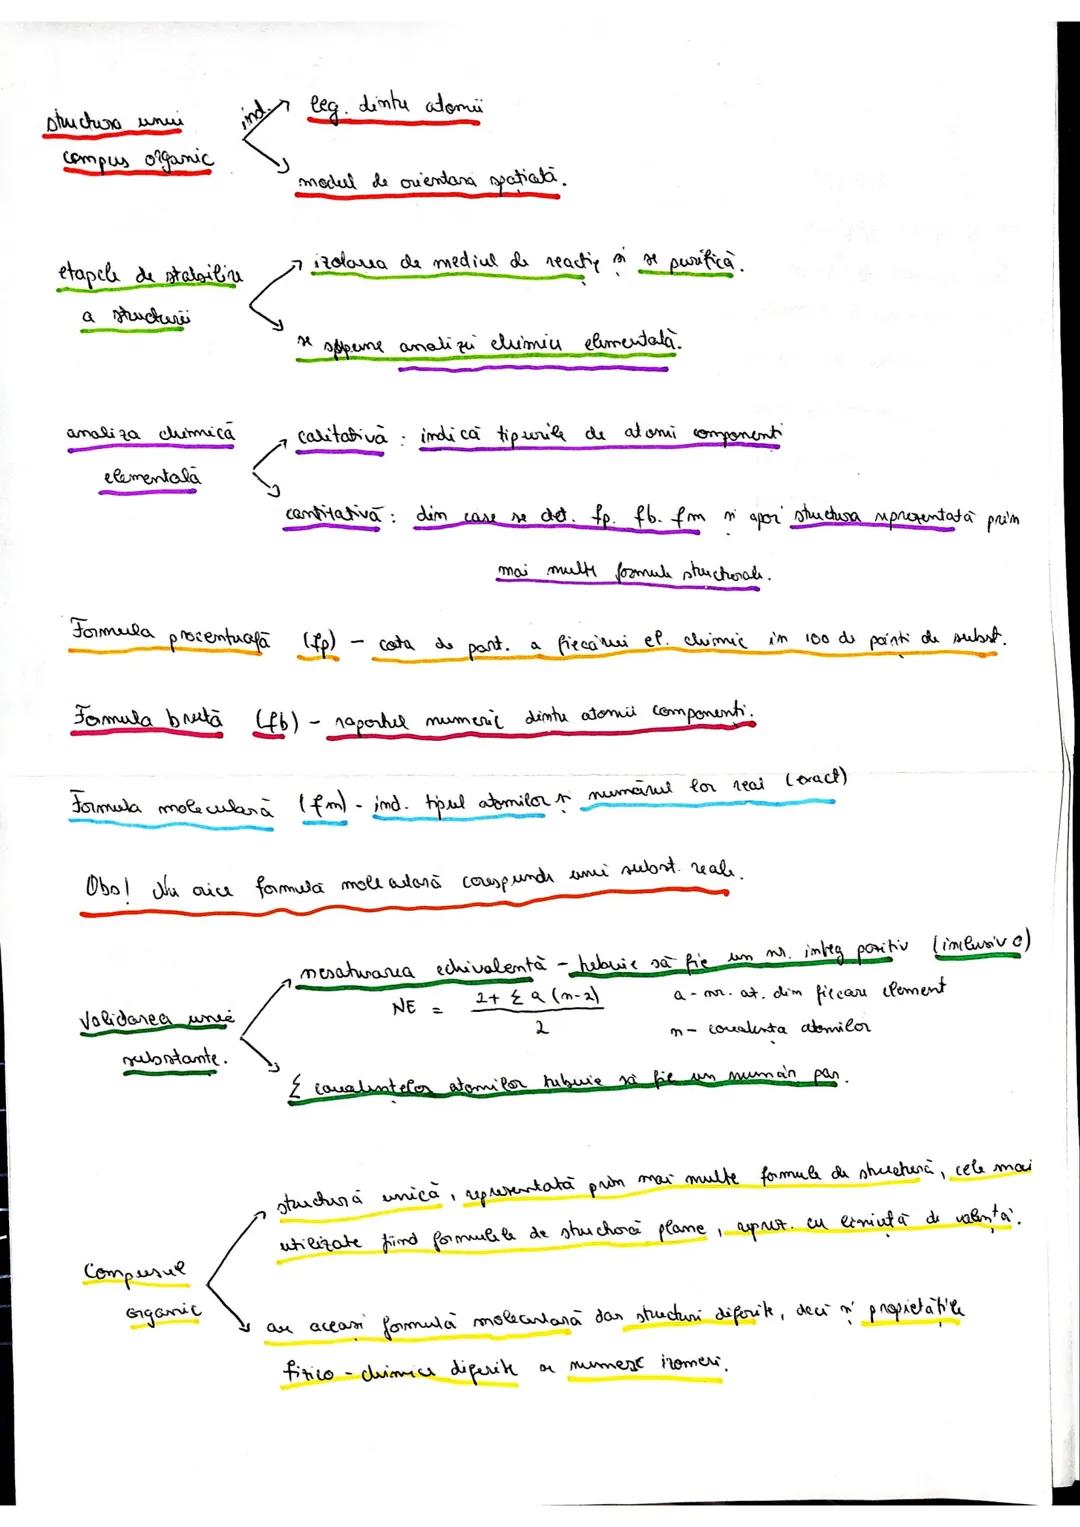 structura unui
compus organic
ind.
leg. dintre atomii
modul de orientară spațială.
etapele de stabilire
a structurii
izolarea de mediul de reacție și se purifică.
se sppune analizei chimice elementală.
analiza chimică
elementală
calitativă : indică tipurile de atomi componenti
cantitativă : din care se det. fp. fb. fm și apoi structura reprezentată prin
mai multe formule structurale.
Formula procentuală (fp) - cata de part. a fiecărui el. chimic in 100 de păriti de subst.
Formula brută (fb) - raportul numeric dintre atomii componenti.
Formula moleculară (fm) - ind. tipul atomilor și numărul lor real (exact)
Obs! Nu orice formulă moleculară corespunde unei subst. reale.
Validarea unei
substante.
nesaturarea echivalentă - trebuie să fie un nr. integ pozitiv (inclusiv 0)
NE = 2+ Σ a (n-2) / 2
a - nr. at. din fiecare element
n - covalența atomilor
Σ covalentelor atomilor trebuie să fie un număr par.
Compusul
organic
structură unică, reprezentată prin mai multe formule de structură, cele mai
utilizate fiind formulele de structură plane, reprez. cu liniuță de valență.
au aceasi formulă moleculară dar structuri diferite, deci și propietățile
fizico - chimice diferite se numesc izomeri.